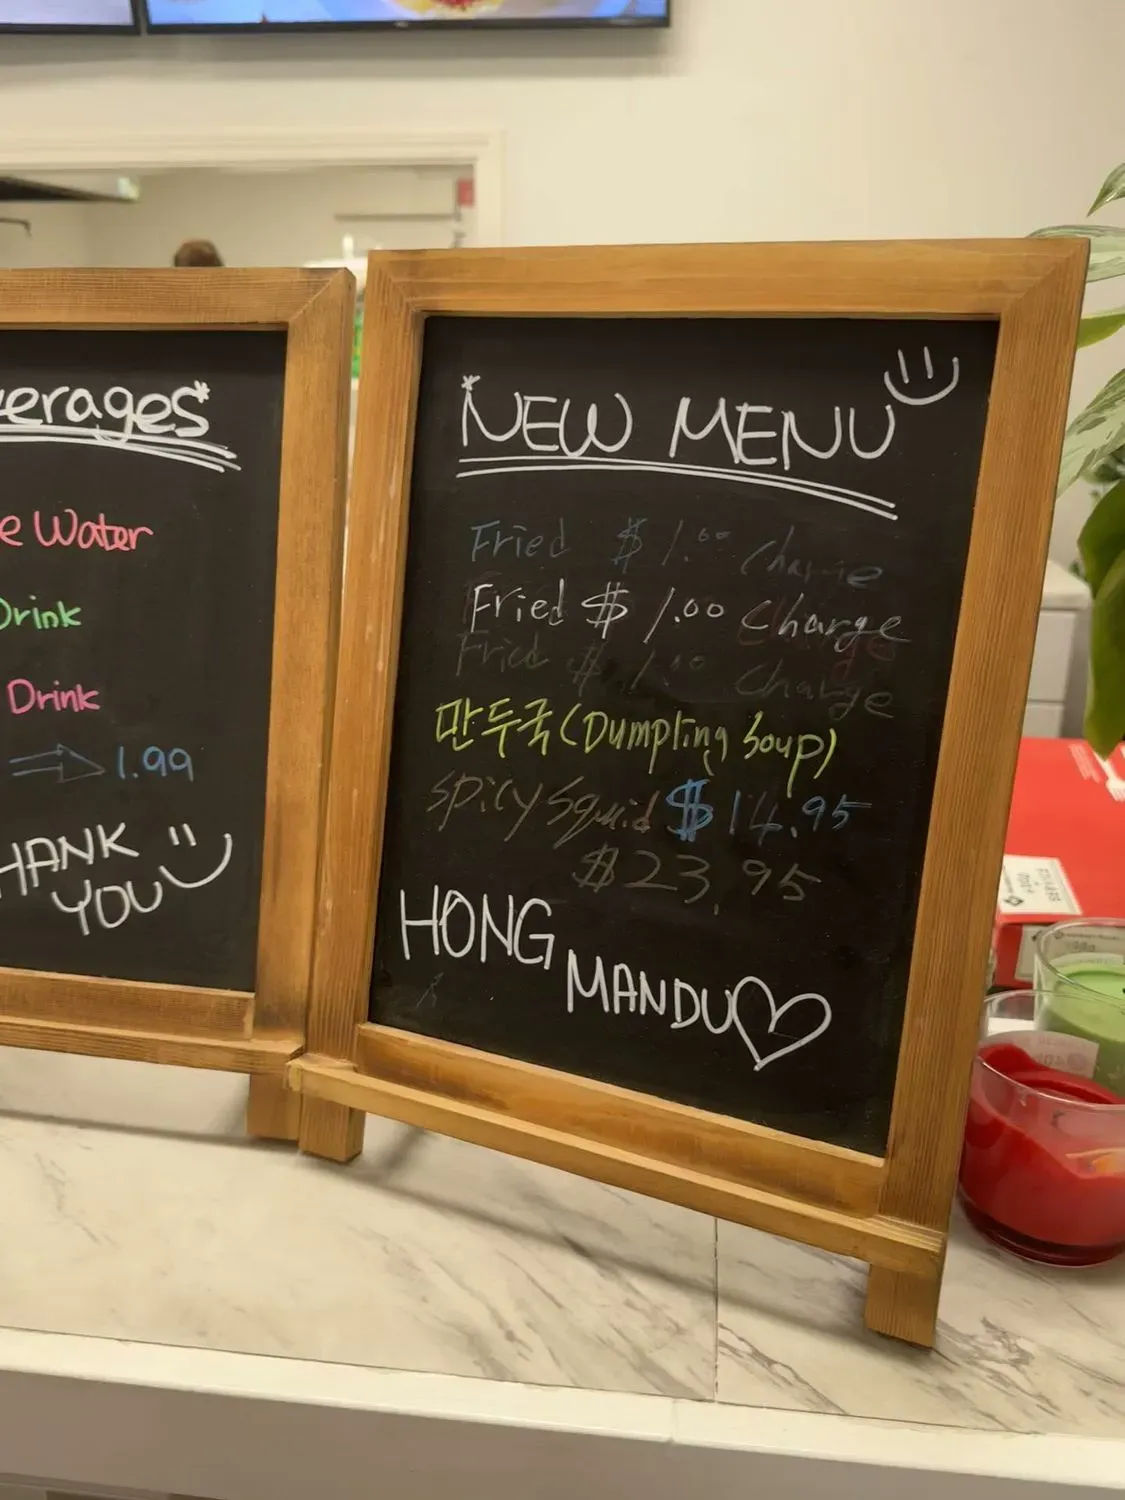 erages*
e Water
Drink
Drink
⇒ 1.99
HANK
YOU
*NEW MENU
Fried $1.00 Charge
Fried $1.00 Charge
Fried $1.00 Charge
만두국(Dumpling Soup)
Spicy Squid $14.95
$23.95
HONG
MANDU♡